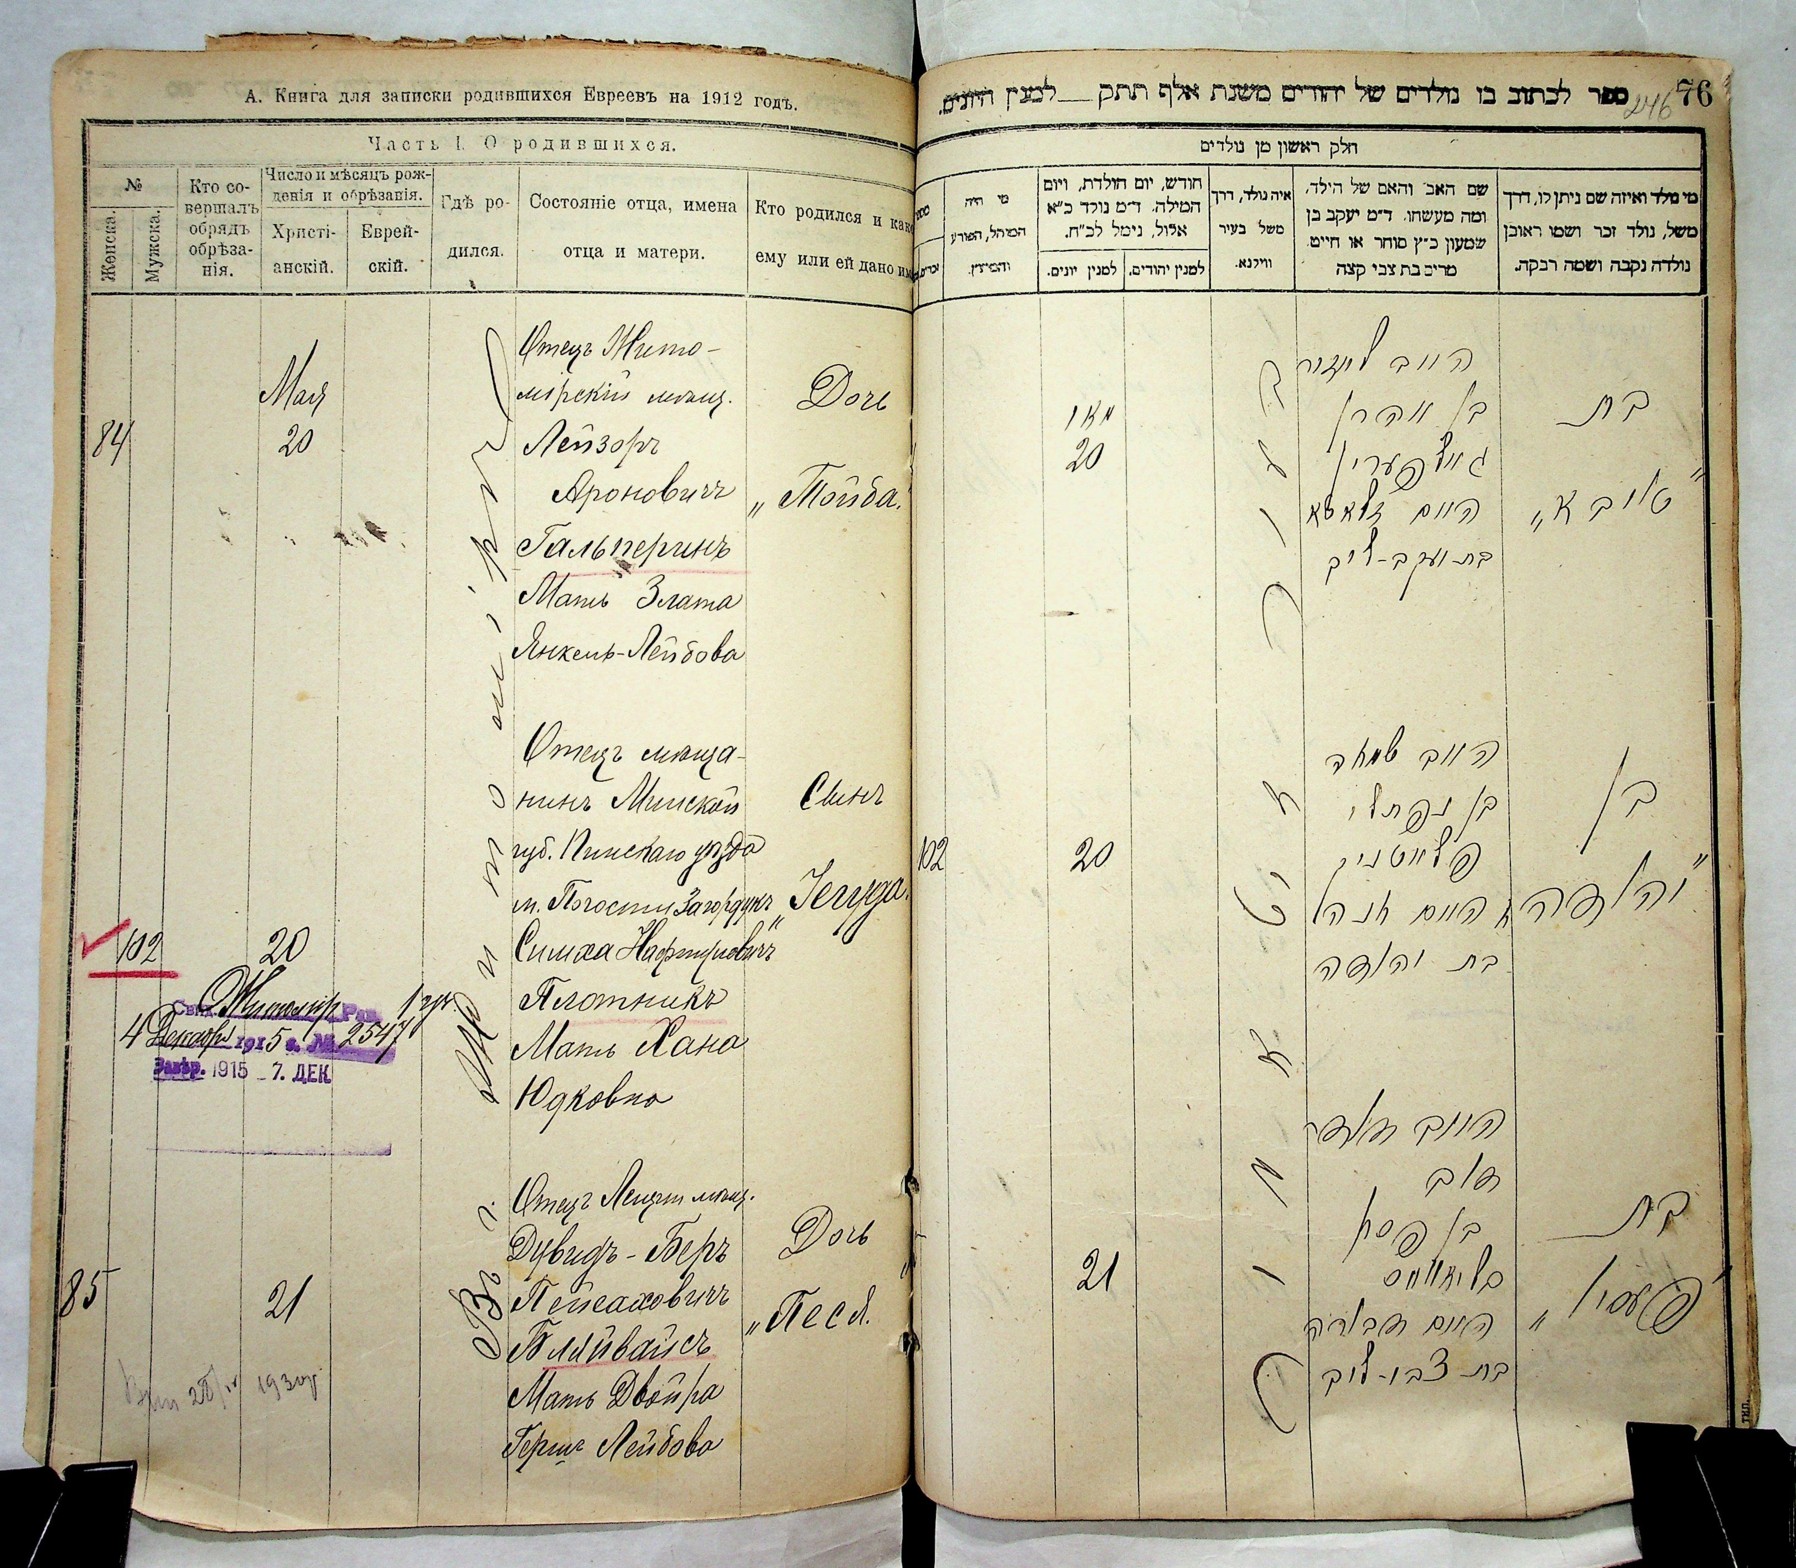 А. Книга для записки родившихся Евреевъ на 1912 годъ.
Часть I. О родившихся.
№
Женска.
Мужска.
Кто со-
вершалъ
обрядъ
обрѣза-
нія.
Число и мѣсяцъ рож-
денія и обрѣзанія.
Христі-
анскій.
Еврей-
скій.
Гдѣ ро-
дился.
Состояніе отца, имена
отца и матери.
Кто родился и како
ему или ей дано им
84
Мая
20
Отецъ Жито-
мірскій мѣщ.
Лейзоръ
Ароновичъ
Гальперинъ
Мать Злата
Янкель-Лейбова
Дочь
„Тойба.
Въ г. Житомірѣ
102
20
Отецъ мѣща-
нинъ Минской
губ. Пинскаго уѣзда
м. Погости Загородск
Симха Нафтуловичъ
Плотникъ
Мать Хана
Юдковна
Сынъ
„Іегуда.
Свид. Житомир Рав.
4 Декабря 1915 г. № 2547
Завѣр. 1915 - 7. ДЕК
85
21
Отецъ мѣщ.
Дувидъ-Беръ
Пейсаховичъ
Бляйвайсъ
Мать Двойра
Герш Лейбова
Дочь
„Песя.
1930г
ספר לכתוב בו נולדים של יהודים משנת אלף תתק__למנין היונים.
246
76
חלק ראשון מן נולדים
מי היה
המוהל, הפורע
והמוצץ.
חודש, יום הולדת, ויום
המילה. ד״מ נולד כ״א
אלול, נימל לכ״ח.
למנין יונים.
למנין יהודים.
איה נולד, דרך
משל בעיר
ווילנא.
שם האב והאם של הילד,
ומה מעשהו. ד״מ יעקב בן
שמעון כ״ץ סוחר או חייט
מרים בת צבי קצה
מי נולד ואיזה שם ניתן לו, דרך
משל, נולד זכר ושמו ראובן
נולדה נקבה ושמה רבקה.
מאי
20
האב ליזור
בן אהרן
גאלפערין
האם זלאטא
בת יעקב-ליב
בת
„טויבא"
102
20
האב שמחה
בן נפתלי
פלאטניק
האם חנה
בת יהודה
בן
„יהודה"
21
האב דוד
דוב
בן פסח
בלייווייס
האם דבורה
בת צבי-ליב
בת
„פעסיל"